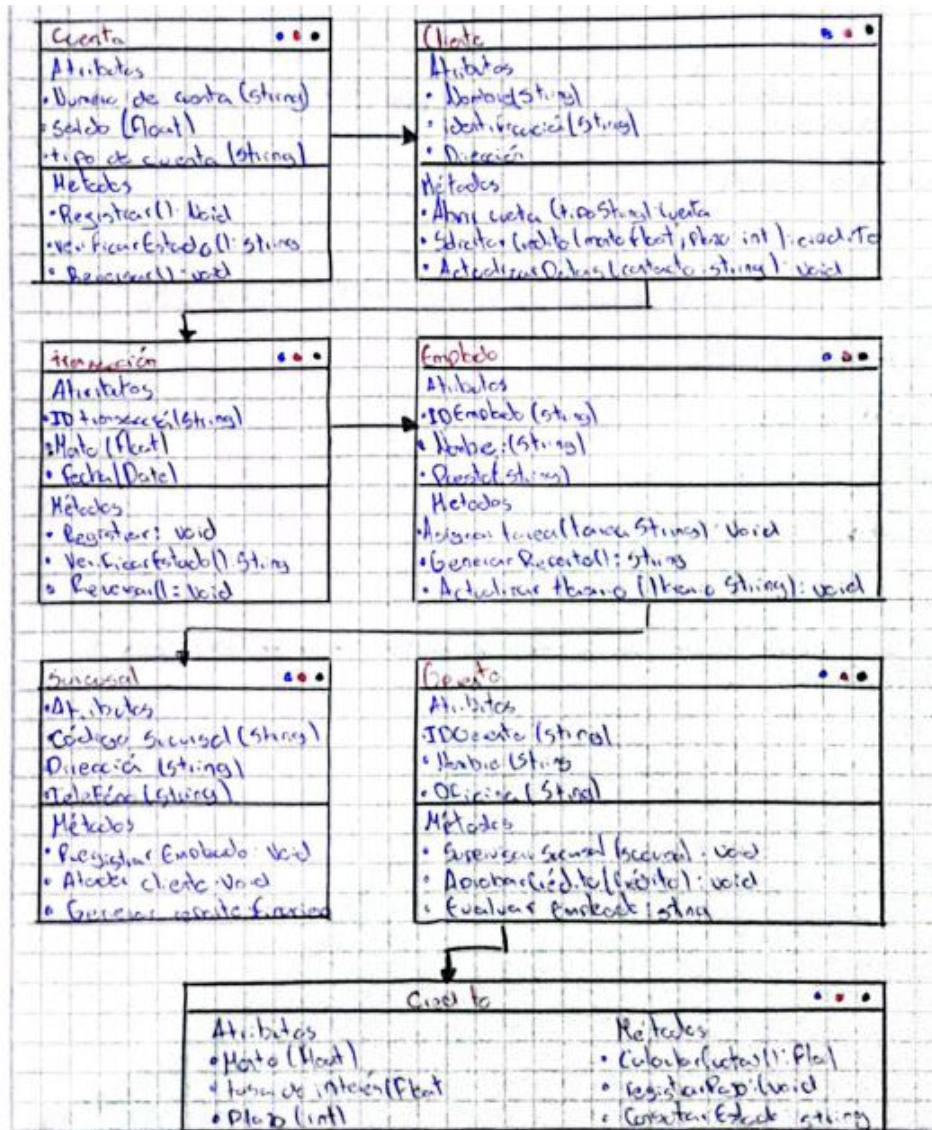 Cuenta
Atributos
• Numero de cuenta (String)
• Saldo (Float)
• tipo de cuenta (String)
Metodos
• Registrar(): Void
• VerificarEstado(): String
• Reversar(): void
Cliente
Atributos
• Nombre (String)
• identificación (String)
• Dirección
Métodos
• Abrir cuenta (tipo String): Cuenta
• Solicitar Crédito (monto float, plazo: int): crédito
• Actualizar Datos (contacto: string): void
transacción
Atributos
• ID transacción (String)
• Monto (Float)
• Fecha (Date)
Métodos
• Registrar: void
• VerificarEstado(): String
• Reversar(): Void
Empleado
Atributos
• ID Empleado (String)
• Nombre: (String)
• Puesto (String)
Metodos
• Asignar tarea (tarea String): Void
• Generar Reporte(): String
• Actualizar Horario (Horario String): void
Sucursal
• Atributos
Código Sucursal (String)
Dirección (String)
• Teléfono (String)
Métodos
• Registrar Empleado: Void
• Atender cliente: Void
• Generar reporte financiero
Gerente
Atributos
IDGerente (String)
• Nombre (String
• Oficina (String)
Métodos
• Supervisar Sucursal (sucursal): void
• AprobarCrédito (Crédito): void
• Evaluar Empleado: string
Credito
Atributos
• Monto (Float)
• tasa de interés (Float
• Plazo (int)
Métodos
• Calcular Cuotas():
• registrar Pago: (void
• Consultar Estado: string